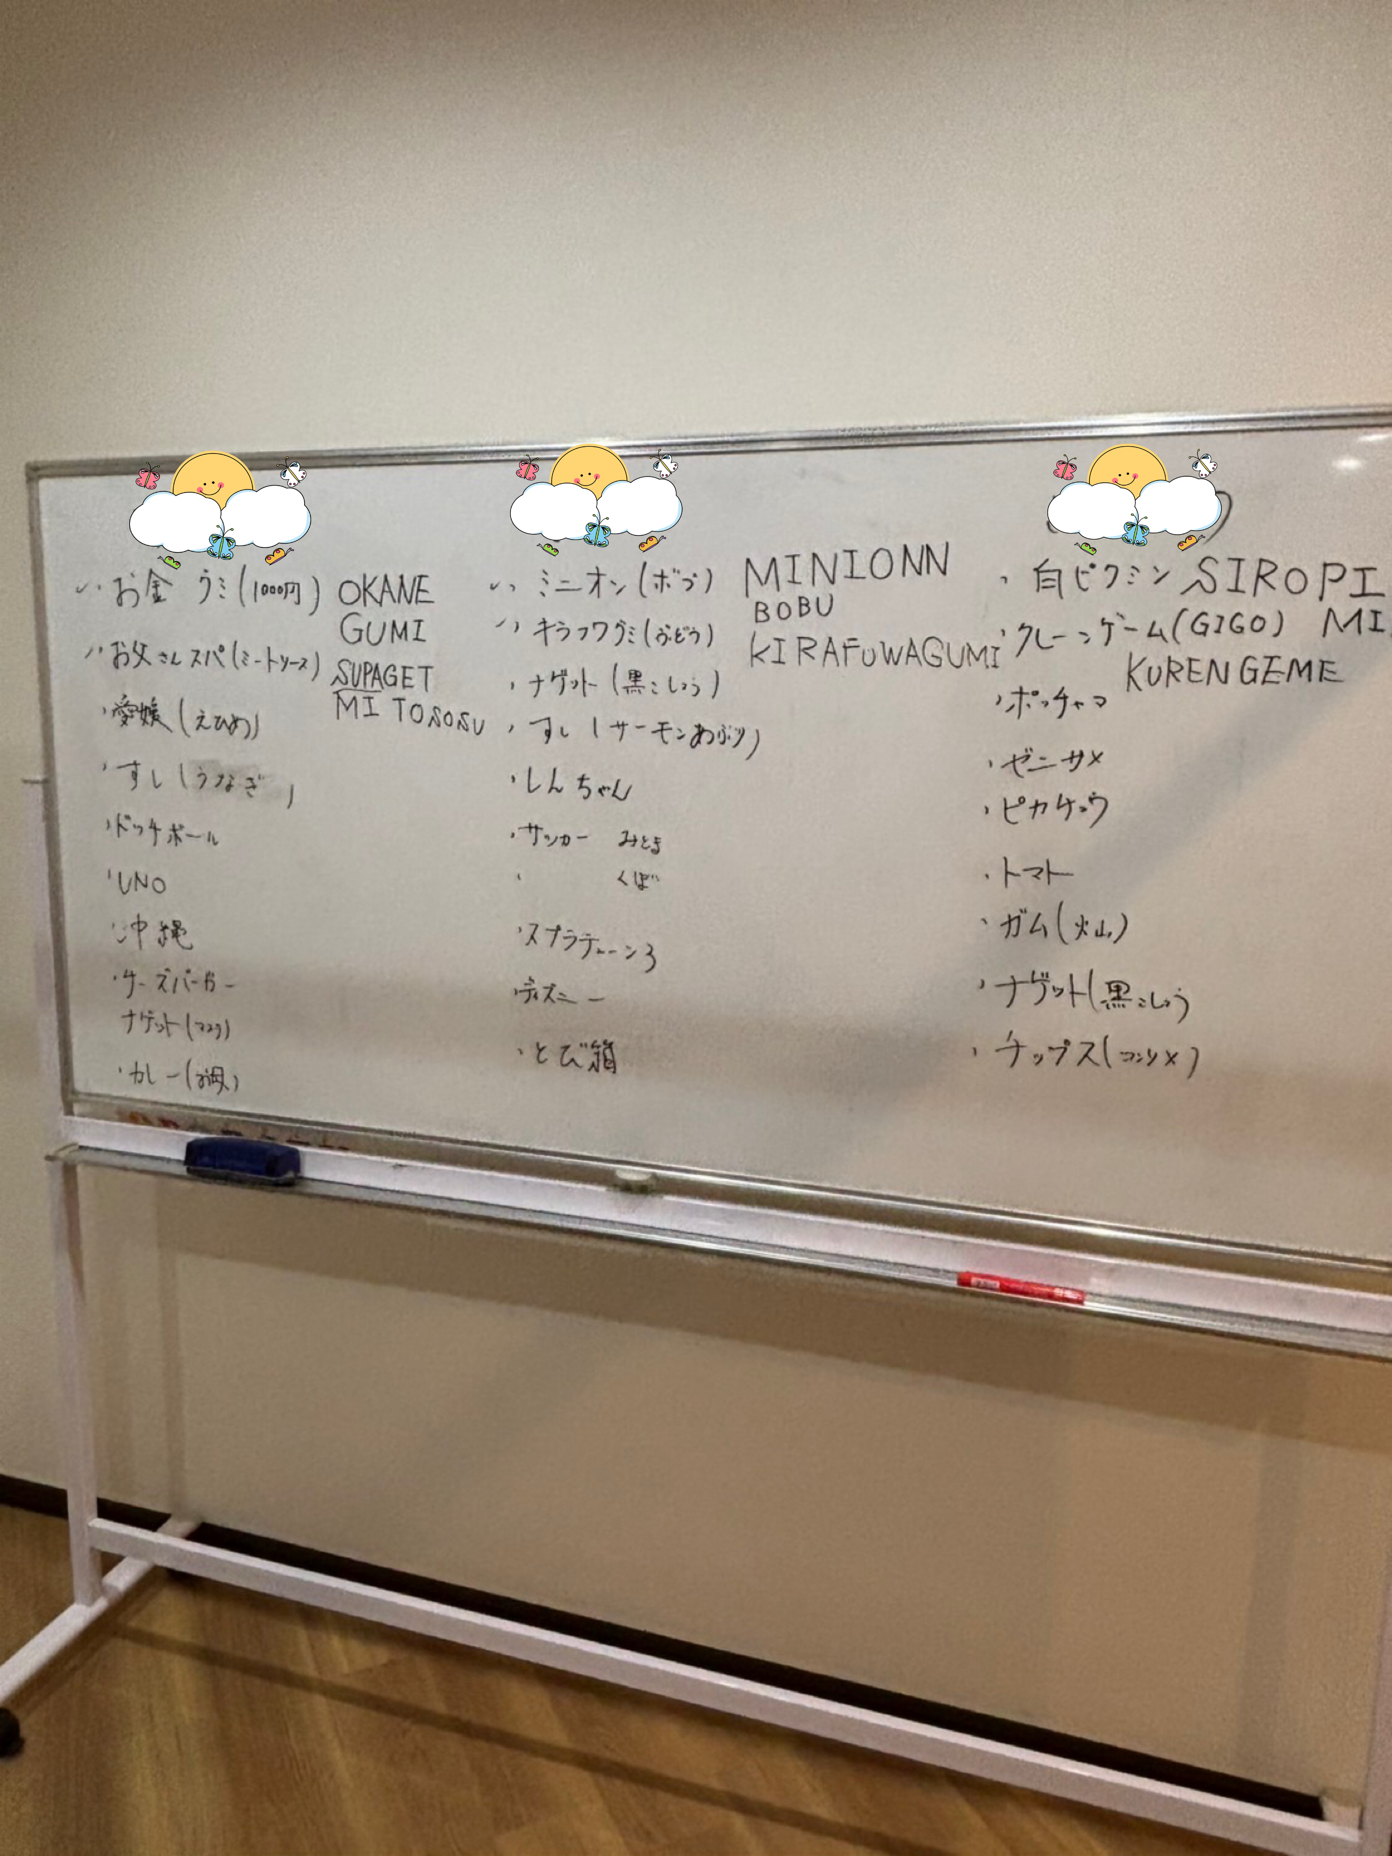 お金 グミ(1000円) OKANE
GUMI
お父さんスパ(ミートソース) SUPAGET
MI TOSOSU
・愛媛(えひめ)
・すし(うなぎ)
・ドッチボール
・UNO
・沖縄
・チーズバーガー
ナゲット(マスタ)
・カレー(お母)
・ミニオン(ボブ) MINIONN
BOBU
・キラフワグミ(ぶどう) KIRAFUWAGUMI
・ナゲット(黒こしょう)
・すし(サーモンあぶり)
・しんちゃん
・サッカー みとま
・ くぼ
・スプラテューン3
・ディズニー
・とび箱
・白ピクミン SIROPI
MI
・クレーンゲーム(GIGO)
KURENGEME
・ポッチャマ
・ゼニサメ
・ピカチュウ
・トマト
・ガム(火山)
・ナゲット(黒こしょう)
・チップス(コンソメ)